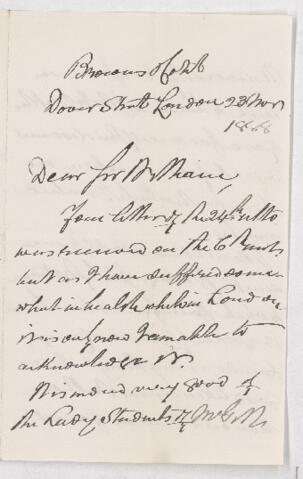 Browns Hotel
Dover Street London 23 Nov
1868
Dear Sir William,
Your letter of the 24th ulto
was received on the 6th Inst
but as I have suffered some
what in health while in London
it is only now I am able to
acknowledge it.
It is most very good of
the Lady Students of McGill